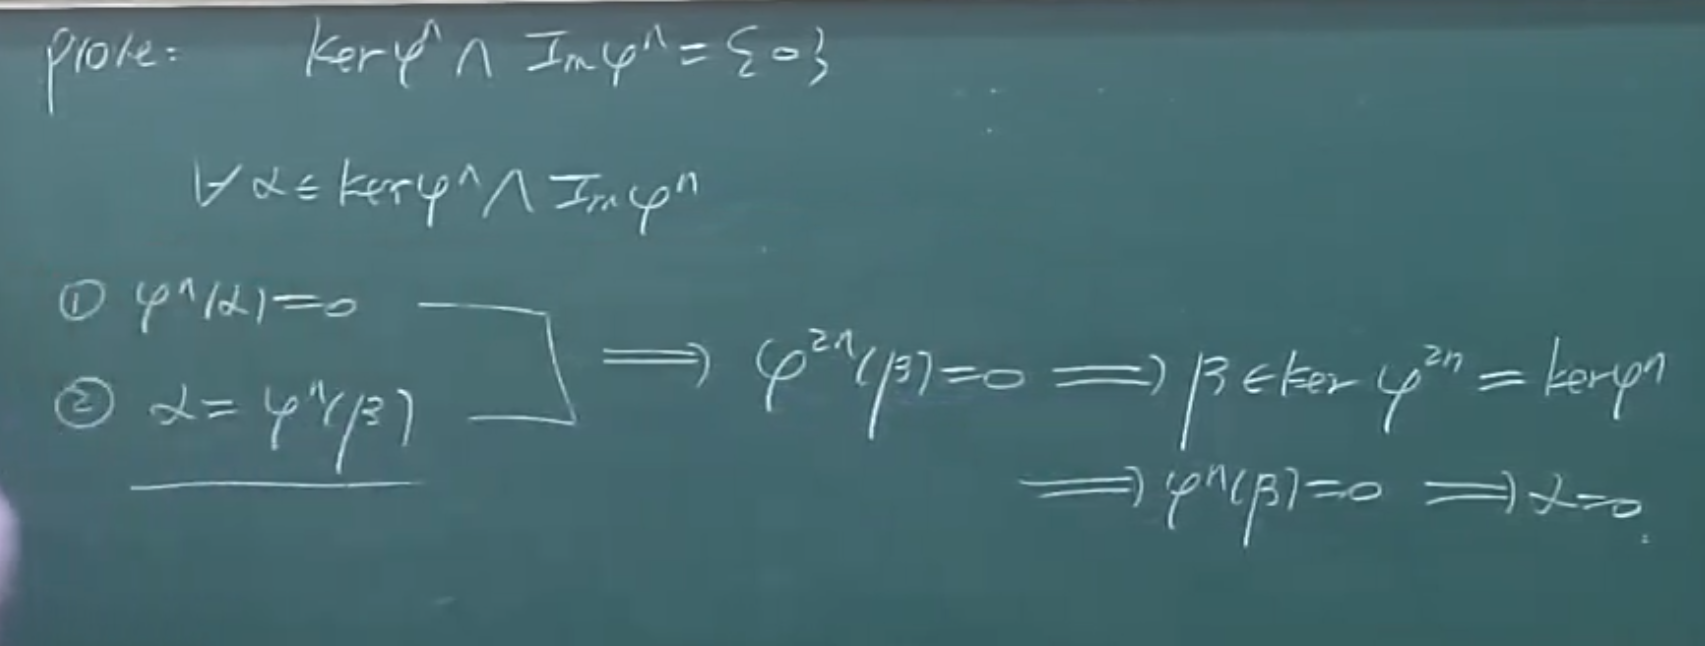 prove: Ker φⁿ ∩ Im φⁿ = {0}
∀ α ∈ Ker φⁿ ∩ Im φⁿ
① φⁿ(α) = 0
② α = φⁿ(β)
⟹ φ²ⁿ(β) = 0 ⟹ β ∈ Ker φ²ⁿ = Ker φⁿ
⟹ φⁿ(β) = 0 ⟹ α = 0.